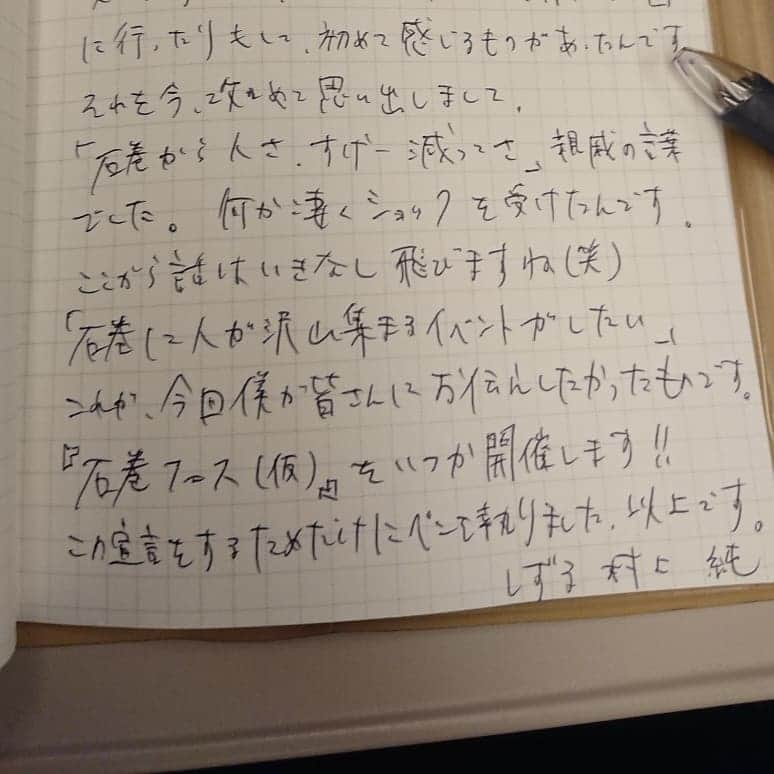 に行ったりもして、初めて感じるものがあったんです。
それを今、改めて思い出しまして、
「石巻から人さ、すげー減ってさ」親戚の言葉
でした。何か凄くショックを受けたんです。
ここから話はいきなし飛びますね(笑)
「石巻に人が沢山集まるイベントがしたい」
これが、今回僕が皆さんにお伝えしたかったものです。
『石巻フース(仮)』をいつか開催します!!
この宣言をするためだけにペンを執りました。以上です。
しずる 村上 純